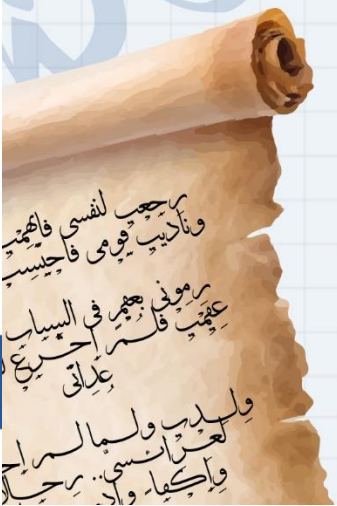 رجعت لنفسي فاتهمت
وناديت قومي فاحتسبت
رموني بعقم في الشباب
عقمت فلم اجزع
عداتي
ولدت ولما لم
لعرائسي.. رجالا
وأكفاء